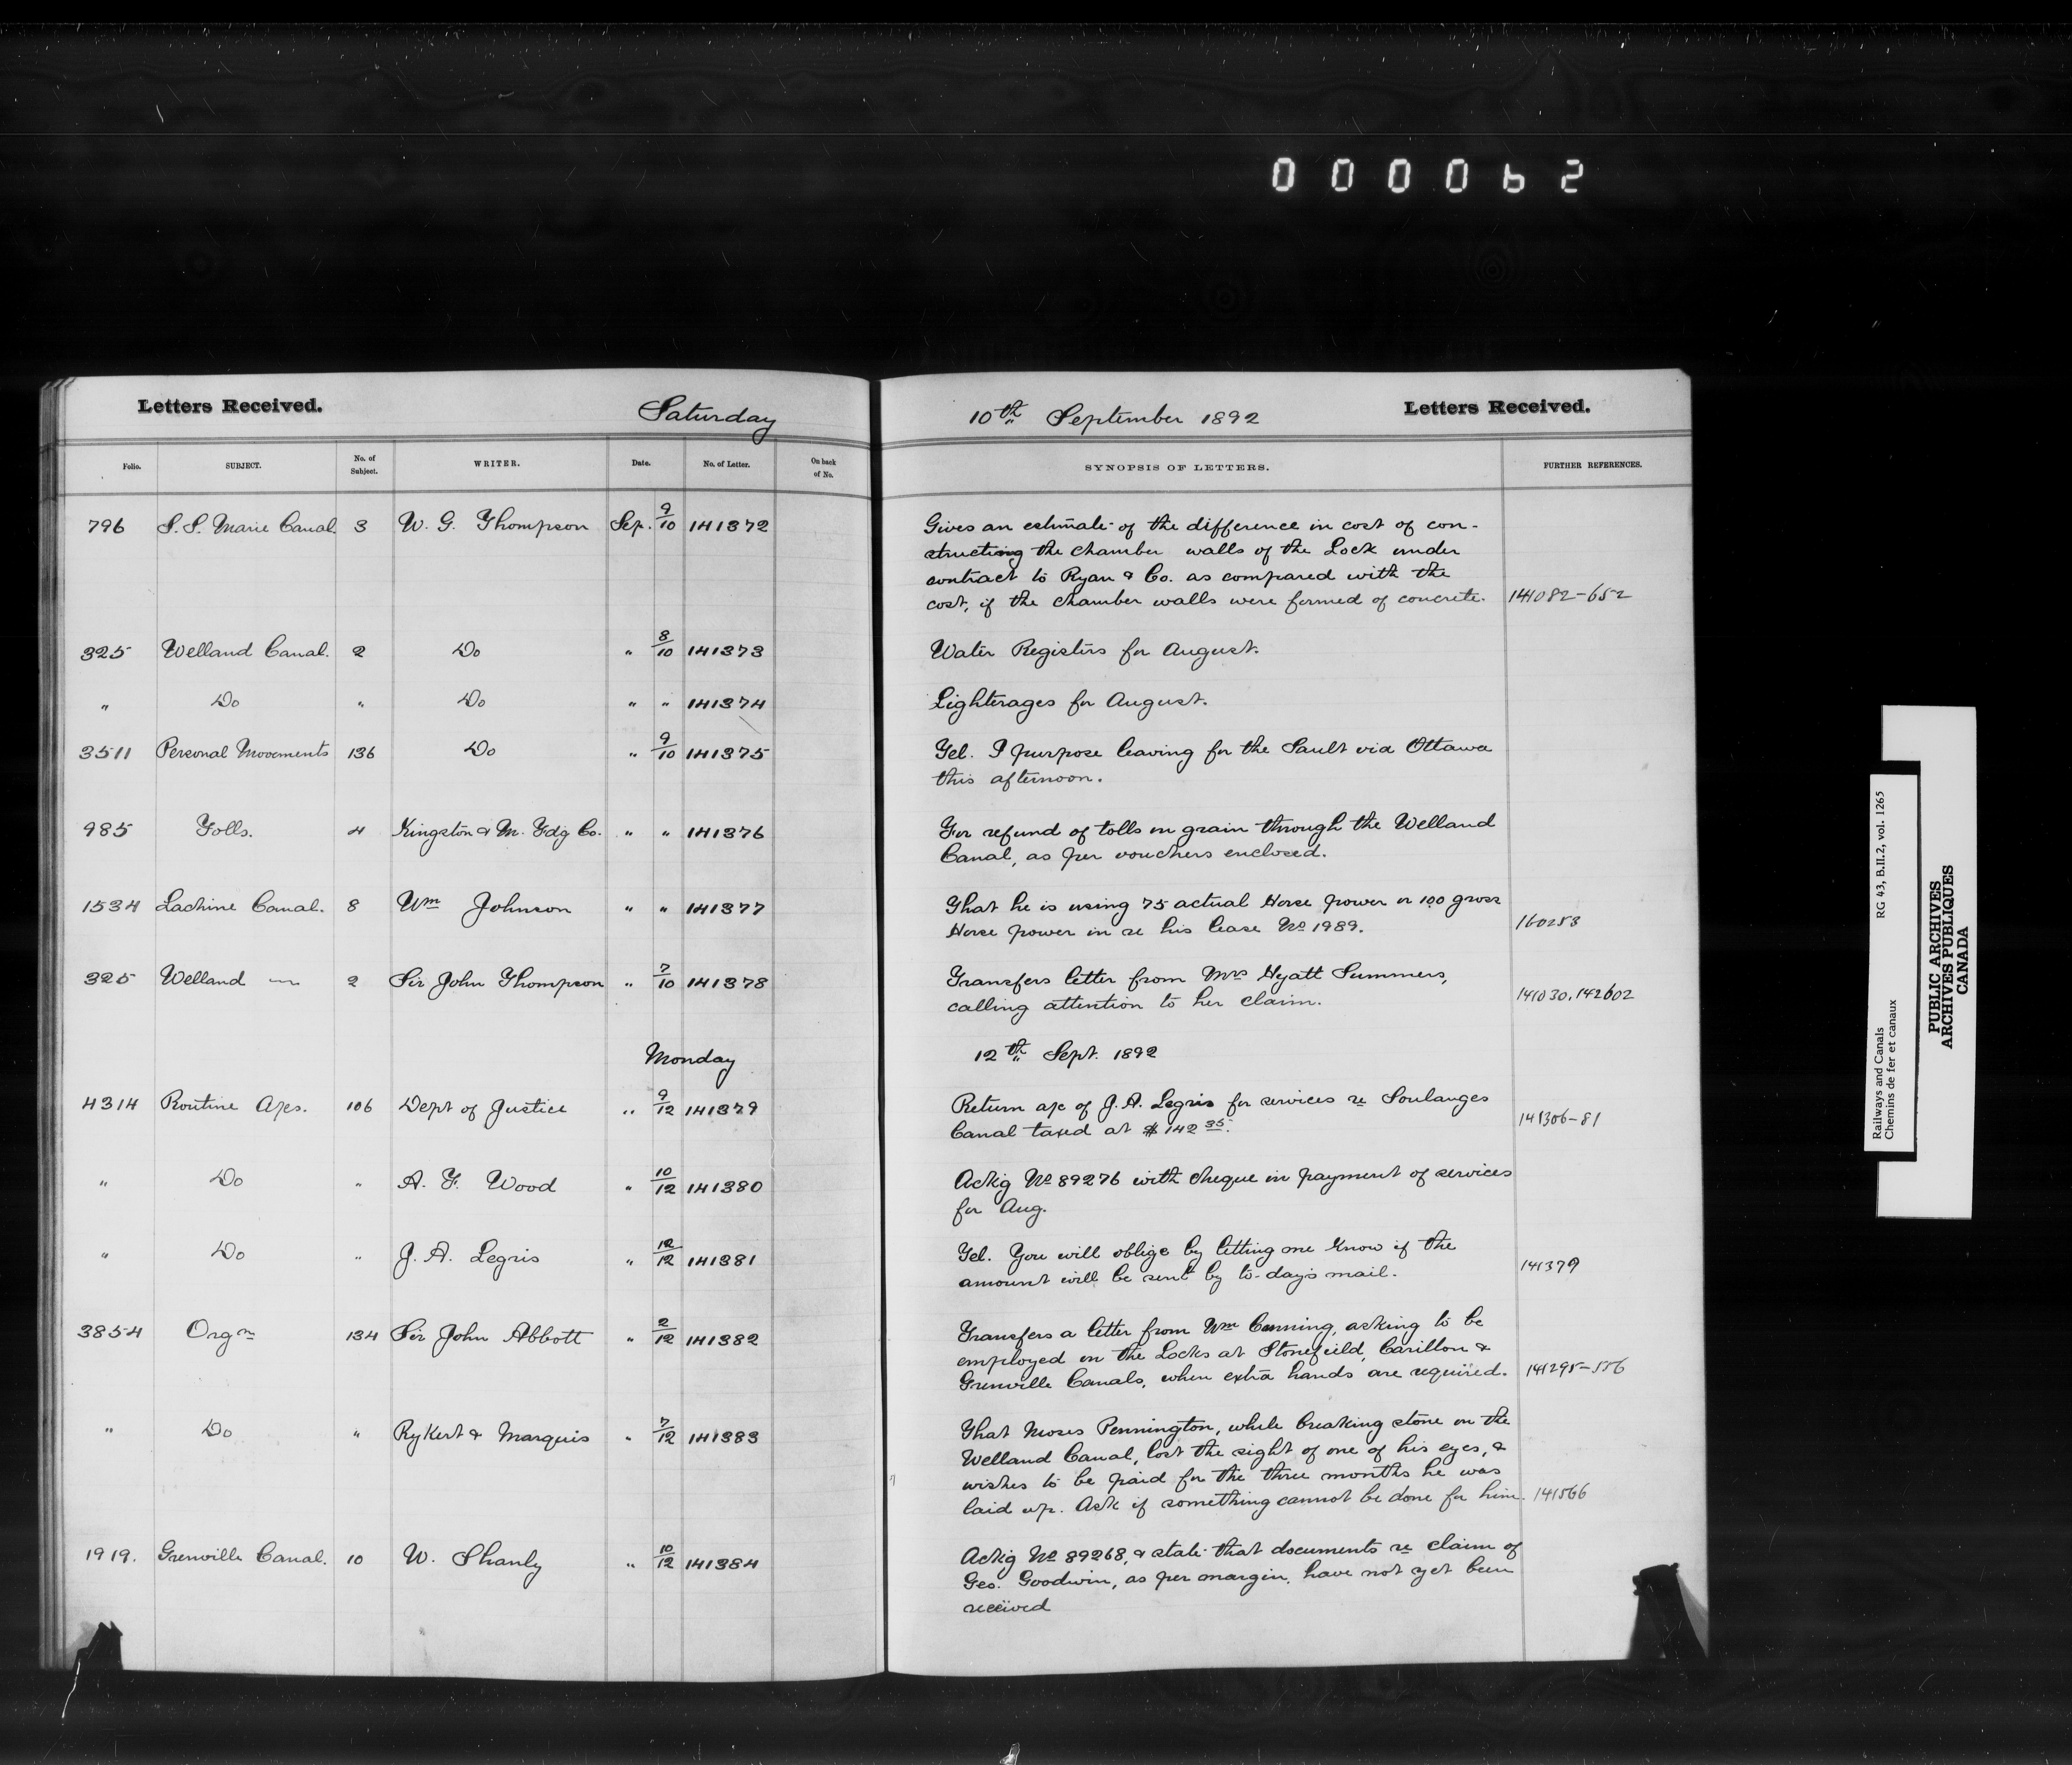 0 0 0 0 6 2
Letters Received.
Saturday
10th September 1892
Letters Received.
Folio. SUBJECT. No. of Subject. WRITER. Date. No. of Letter. On back of No.
SYNOPSIS OF LETTERS. FURTHER REFERENCES.
796 S. S. Marie Canal. 3 W. G. Thompson Sep. 9/10 141372
Gives an estimate of the difference in cost of con-
structing the chamber walls of the Lock under
contract to Ryan & Co. as compared with the
cost, if the chamber walls were formed of concrete. 141082-652
325 Welland Canal. 2 Do " 8/10 141373
Water Registers for August.
" Do " Do " " 141374
Lighterages for August.
3511 Personal Movements 136 Do " 9/10 141375
Tel. I purpose leaving for the Sault via Ottawa
this afternoon.
985 Tolls. 4 Kingston & M. Fdg Co. " " 141376
For refund of tolls on grain through the Welland
Canal, as per vouchers enclosed.
1534 Lachine Canal. 8 Wm Johnson " " 141377
That he is using 75 actual Horse power or 100 gross
Horse power in re his lease No 1989. 160283
325 Welland 2 Sir John Thompson " 7/10 141378
Transfers letter from Mrs Hyatt Summers,
calling attention to her claim. 141030, 142602
Monday
12th Sept. 1892
4314 Routine A/cs. 106 Dept of Justice " 9/12 141379
Return a/c of J. A. Legris for services re Soulanges
Canal taxed at $142 35. 141306-81
" Do " A. F. Wood " 10/12 141380
Ackg No 89276 with cheque in payment of services
for Aug.
" Do " J. A. Legris " 12/12 141381
Tel. You will oblige by letting me know if the
amount will be sent by to-day's mail. 141379
3854 Orgn 134 Sir John Abbott " 2/12 141382
Transfers a letter from Wm Cunning, asking to be
employed on the Locks at Stonefield, Carillon &
Grenville Canals, when extra hands are required. 141295-
" Do " Rykert & Marquis " 7/12 141383
That Moses Pennington, while breaking stone on the
Welland Canal, lost the sight of one of his eyes, &
wishes to be paid for the three months he was
laid up. Ask if something cannot be done for him. 141566
1919. Grenville Canal. 10 W. Shanly " 10/12 141384
Ackg No 89268, & state that documents re claim of
Geo. Goodwin, as per margin, have not yet been
received
Railways and Canals RG 43, B.II.2, vol. 1265
Chemins de fer et canaux
PUBLIC ARCHIVES
ARCHIVES PUBLIQUES
CANADA